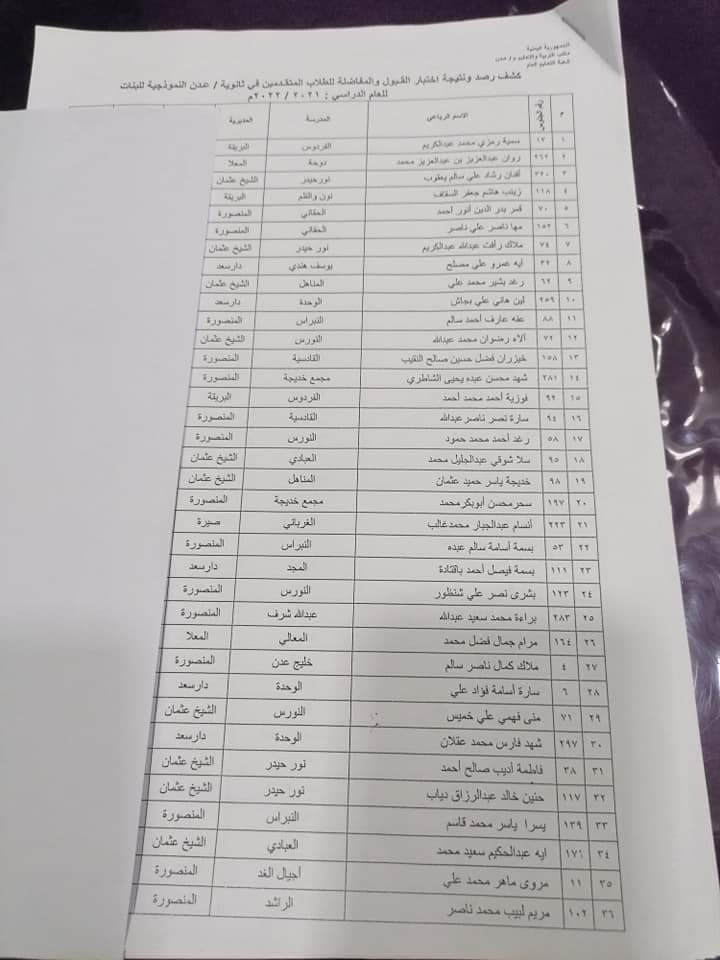 الجمهورية اليمنية
مكتب التربية والتعليم م/ عدن
شعبة التعليم العام
كشف رصد ونتيجة اختبار القبول والمفاضلة للطلاب المتقدمين في ثانوية / عدن النموذجية للبنات
للعام الدراسي : ٢٠٢١ / ٢٠٢٢م
م رقم الجلوس الاسم الرباعي المدرسة المديرية
١ ١٧ سمية رمزي محمد عبدالكريم الفردوس البريقة
٢ ٢٦٢ روان عبدالعزيز بن عبدالعزيز محمد دوحة المعلا
٣ ٣٢٠ أفنان رشاد علي سالم يعقوب نورحيدر الشيخ عثمان
٤ ١١٨ زينب هاشم جعفر السقاف نون والقلم البريقة
٥ ٧٠ قمر بدر الدين أنور أحمد الحقاني المنصورة
٦ ١٥٢ مها ناصر علي ناصر الحقاني المنصورة
٧ ٧٤ ملاك رأفت عبدالله عبدالكريم نور حيدر الشيخ عثمان
٨ ٣٢ ايه عمرو علي مصلح يوسف هندي دارسعد
٩ ٦٢ رغد بشير محمد علي المناهل الشيخ عثمان
١٠ ٢٥٩ لين هاني علي بجاش الوحدة دارسعد
١١ ٨٨ عفه عارف أحمد سالم النبراس المنصورة
١٢ ٧٢ آلاء رضوان محمد عبدالله النورس الشيخ عثمان
١٣ ١٥٨ خيزران فضل حسين صالح النقيب القادسية المنصورة
١٤ ٢٨١ شهد محسن عبده يحيى الشاطري مجمع خديجة المنصورة
١٥ ٩٢ فوزية أحمد محمد أحمد الفردوس البريقة
١٦ ٩٤ سارة نصر ناصر عبدالله القادسية المنصورة
١٧ ٥٨ رغد أحمد محمد حمود النورس المنصورة
١٨ ٩٥ سلا شوقي عبدالجليل محمد العبادي الشيخ عثمان
١٩ ٩٨ خديجة ياسر حميد عثمان المناهل الشيخ عثمان
٢٠ ١٩٧ سحرمحسن أبوبكرمحمد مجمع خديجة المنصورة
٢١ ٢٢٣ أنسام عبدالجبار محمدغالب الغرباني صيرة
٢٢ ٥٣ بسمة أسامة سالم عبده النبراس المنصورة
٢٣ ١١١ بسمة فيصل أحمد باقتادة المجد دارسعد
٢٤ ١٢٣ بشرى نصر علي شنظور النورس المنصورة
٢٥ ٢٨٣ براءة محمد سعيد عبدالله عبدالله شرف المنصورة
٢٦ ١٦٤ مرام جمال فضل محمد المعالي المعلا
٢٧ ٤ ملاك كمال ناصر سالم خليج عدن المنصورة
٢٨ ٦ سارة أسامة فؤاد علي الوحدة دارسعد
٢٩ ٧١ منى فهمي علي خميس النورس الشيخ عثمان
٣٠ ٢٩٧ شهد فارس محمد عقلان الوحدة دارسعد
٣١ ٣٨ فاطمة أديب صالح أحمد نور حيدر الشيخ عثمان
٣٢ ١١٧ حنين خالد عبدالرزاق دياب نور حيدر الشيخ عثمان
٣٣ ١٣٩ يسرا ياسر محمد قاسم النبراس المنصورة
٣٤ ايه عبدالحكيم سعيد محمد العبادي الشيخ عثمان
٣٥ ١١ مروى ماهر محمد علي أجيال الغد المنصورة
٣٦ ١٠٢ مريم لبيب محمد ناصر الراشد المنصورة